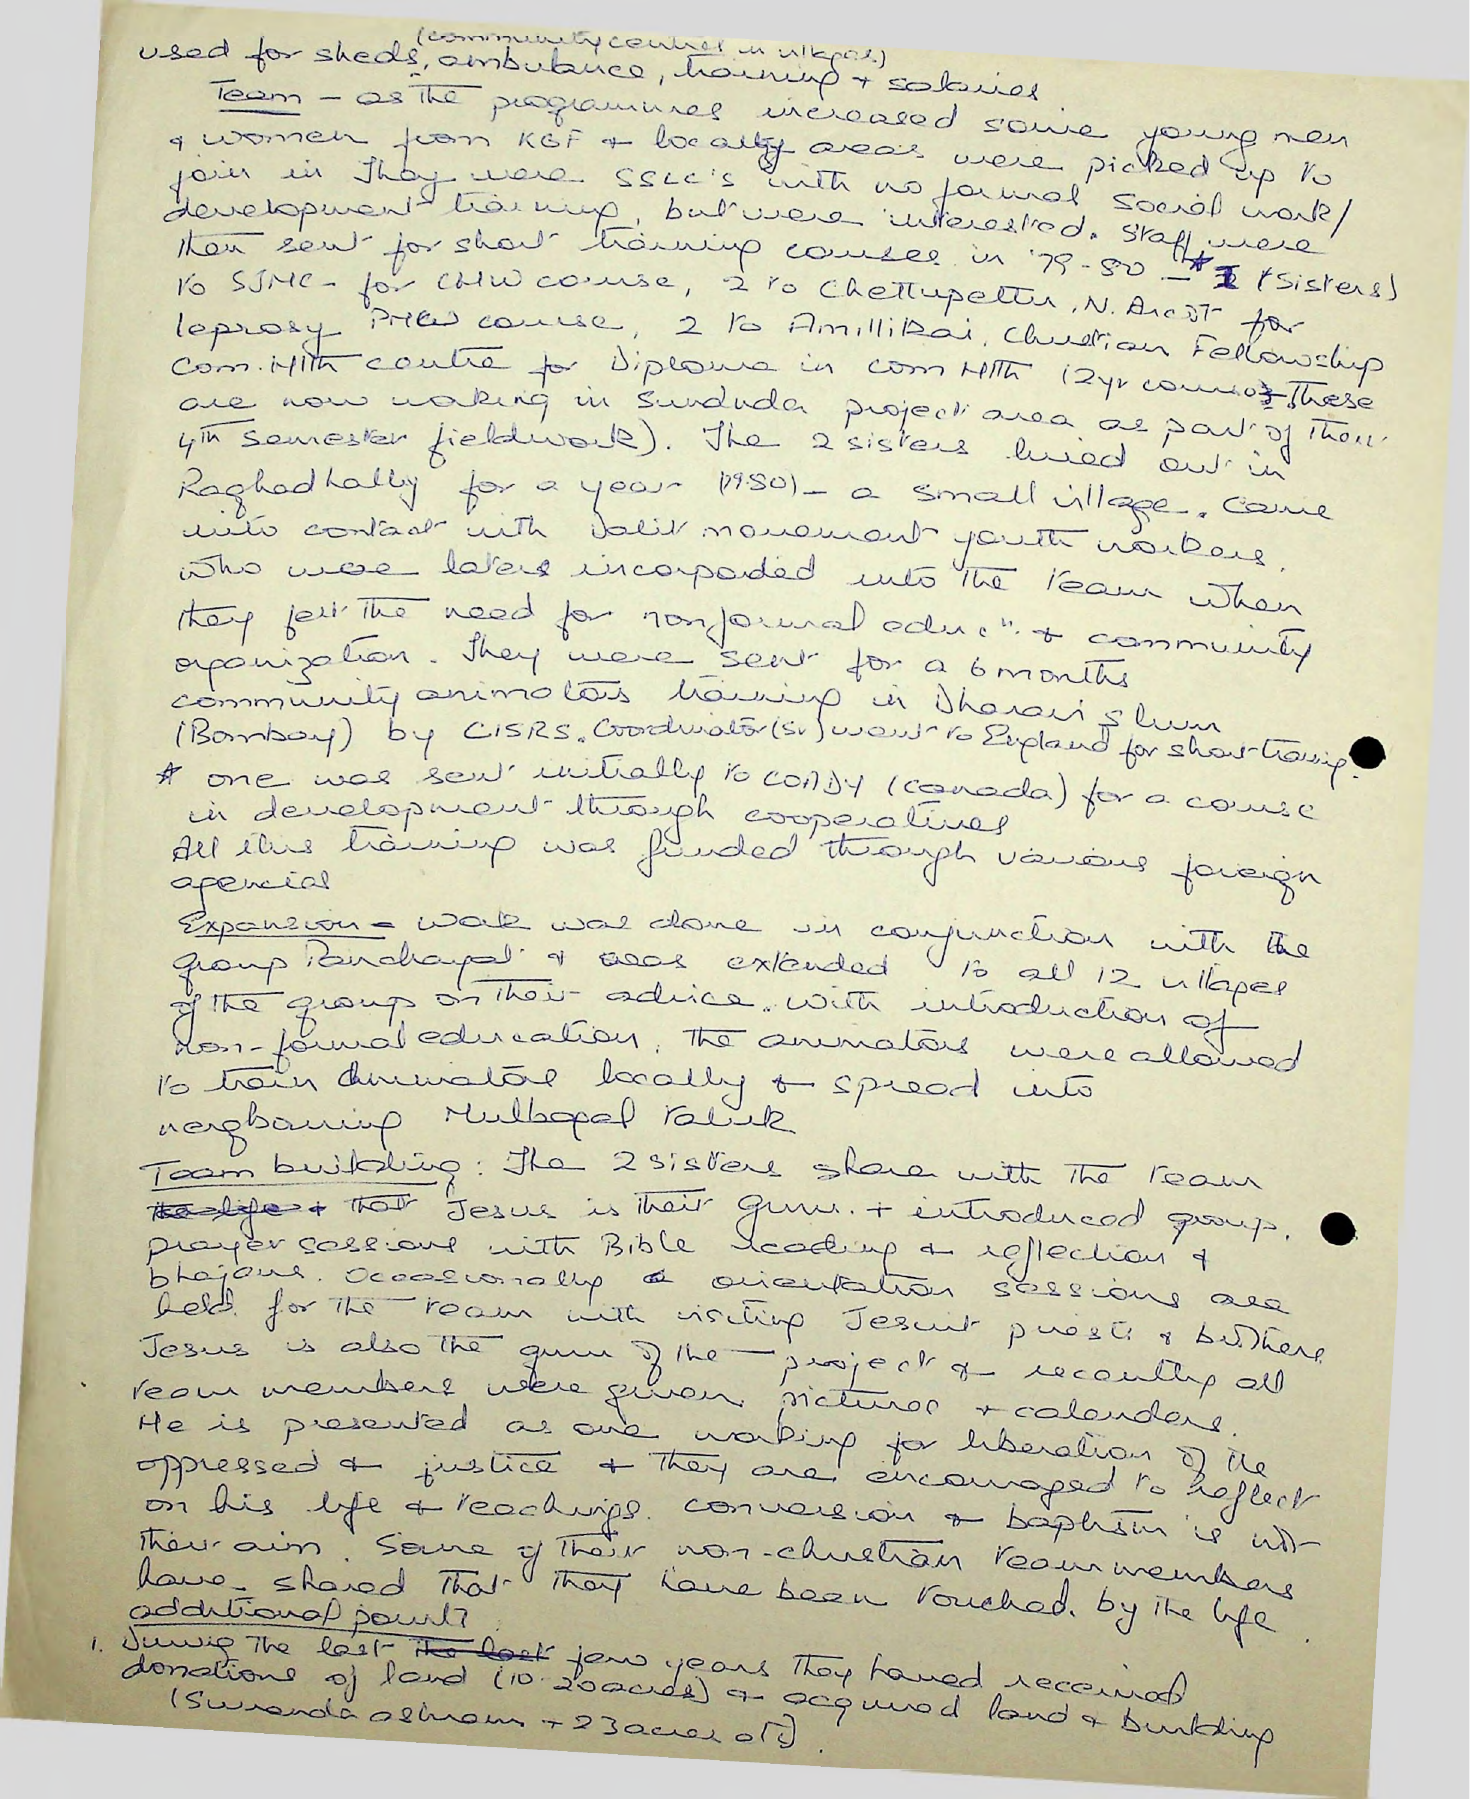 (community centres in villages)
used for sheds, ambulance, training + salaries
Team – as the programmes increased some young men
& women from KGF + locally areas were picked up to
join in They were SSLC's with no formal social work/
development training, but were interested. Staff were
then sent for short training courses in '79-80 – * 2 (Sisters)
to SJMC – for CHW course, 2 to Chettupettu, N. Arcot for
leprosy PMW course, 2 to Amillikai, Christian Fellowship
Com. Hlth centre for Diploma in Com Hlth (2yr course. These
are now working in project area as part of their
4th semester fieldwork). The 2 sisters lived out in
Raghadhally for a year (1980) – a small village. Came
into contact with Dalit movement youth workers.
Who were later incorporated into the team when
they felt the need for nonformal educn. + community
organization. They were sent for a 6 months
community animators training in Dharavi slum
(Bombay) by CISRS. Coordinator (Sr) went to England for short training.
* one was sent initially to COADY (Canada) for a course
in development through cooperatives
All this training was funded through various foreign
agencies
Expansion – work was done in conjunction with the
group Panchayat & was extended to all 12 villages
of the group on their advice. With introduction of
non-formal education, the animators were allowed
to train animators locally + spread into
neighbouring Mulbagal taluk
Team building: The 2 sisters share with the team
the life + that Jesus is their Guru. + introduced group
prayer sessions with Bible reading + reflection &
bhajans. Occasionally orientation sessions are
held for the team with visiting Jesuit priests & brothers
Jesus is also the guru of the – project + recently all
team members were given pictures + calendars.
He is presented as one working for liberation of the
oppressed + justice + they are encouraged to reflect
on his life + teachings. Conversion + baptism is not
their aim. Some of their non-christian team members
have shared that they have been touched by the life.
additional points
1. During the last the last few years they haved received
donations of land (10-20 acres) + acquired land & building
(Sunanda ashram + 23 acres etc)